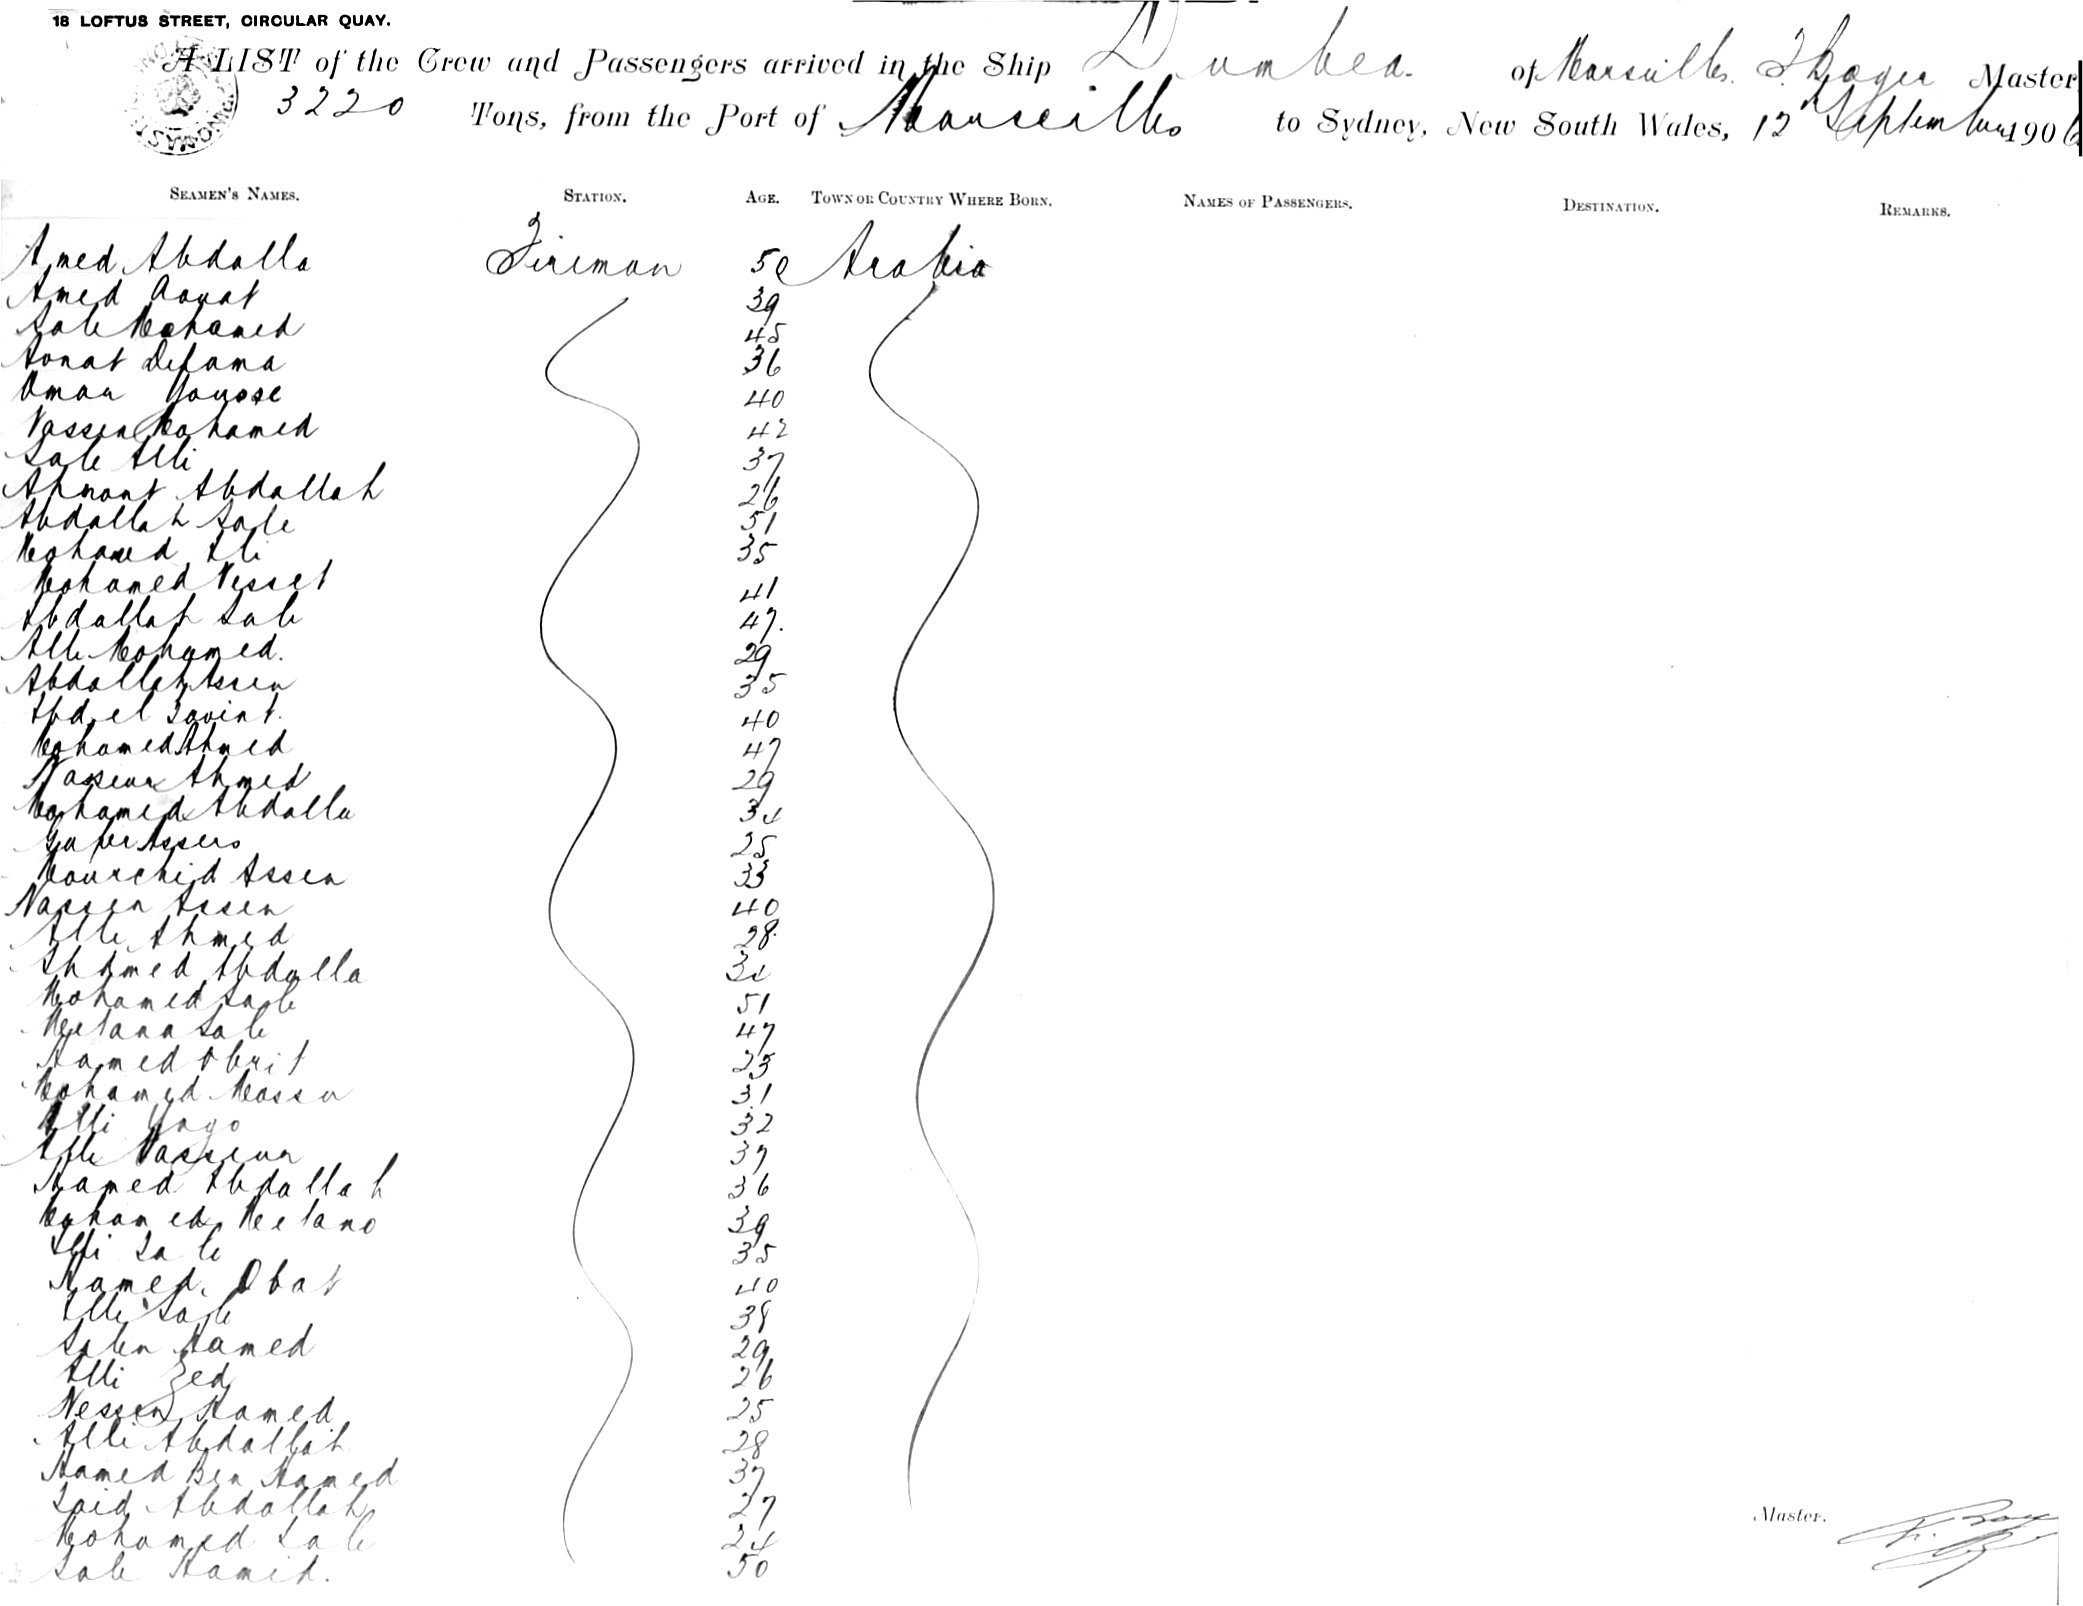 18 LOFTUS STREET, CIRCULAR QUAY.
A LIST of the Crew and Passengers arrived in the Ship Dumbea. of Marseilles. Master
3220 Tons, from the Port of Marseilles to Sydney, New South Wales, 12 September 1906
SEAMEN'S NAMES. STATION. AGE. TOWN OR COUNTRY WHERE BORN. NAMES OF PASSENGERS. DESTINATION. REMARKS.
Amed Abdalla Fireman 50 Arabia
Amed Aouat 39
Sale Mohamed 45
Aonat Defama 36
Omar Yousse 40
Nassen Mohamed 42
Sale Alli 37
Ahmont Abdallah 26
Abdallah Sale 51
Mohamed Ali 35
Mohamed Nesset 41
Abdallah Sale 47.
Alli Mohamed. 29
Abdallah Assen 35
Abd el 40
Mohamed Ahmed 47
Nasseur Ahmed 29
Mohamed Abdalla 34
25
Mourchid Assen 33
Nassen Assen 40
Alli Ahmed 28
Ahamed Abdalla 34
Mohamed Sale 51
Metana Sale 47
Hamed Obrit 23
Mohamed Mosser 31
Alli Yago 32
Alli Nasseur 37
Hamed Abdallah 36
Mohamed Metano 39
Alli Sale 35
Hamed. Obat 40
Alli Sale 38
Salen Hamed 29
Alli Zed 26
Nessen Hamed 25
Alli Abdallah 28
Hamed Ben Hamed 37
Said Abdallah 27
Mohamed Sale 24
Sale Hamid. 50
Master.